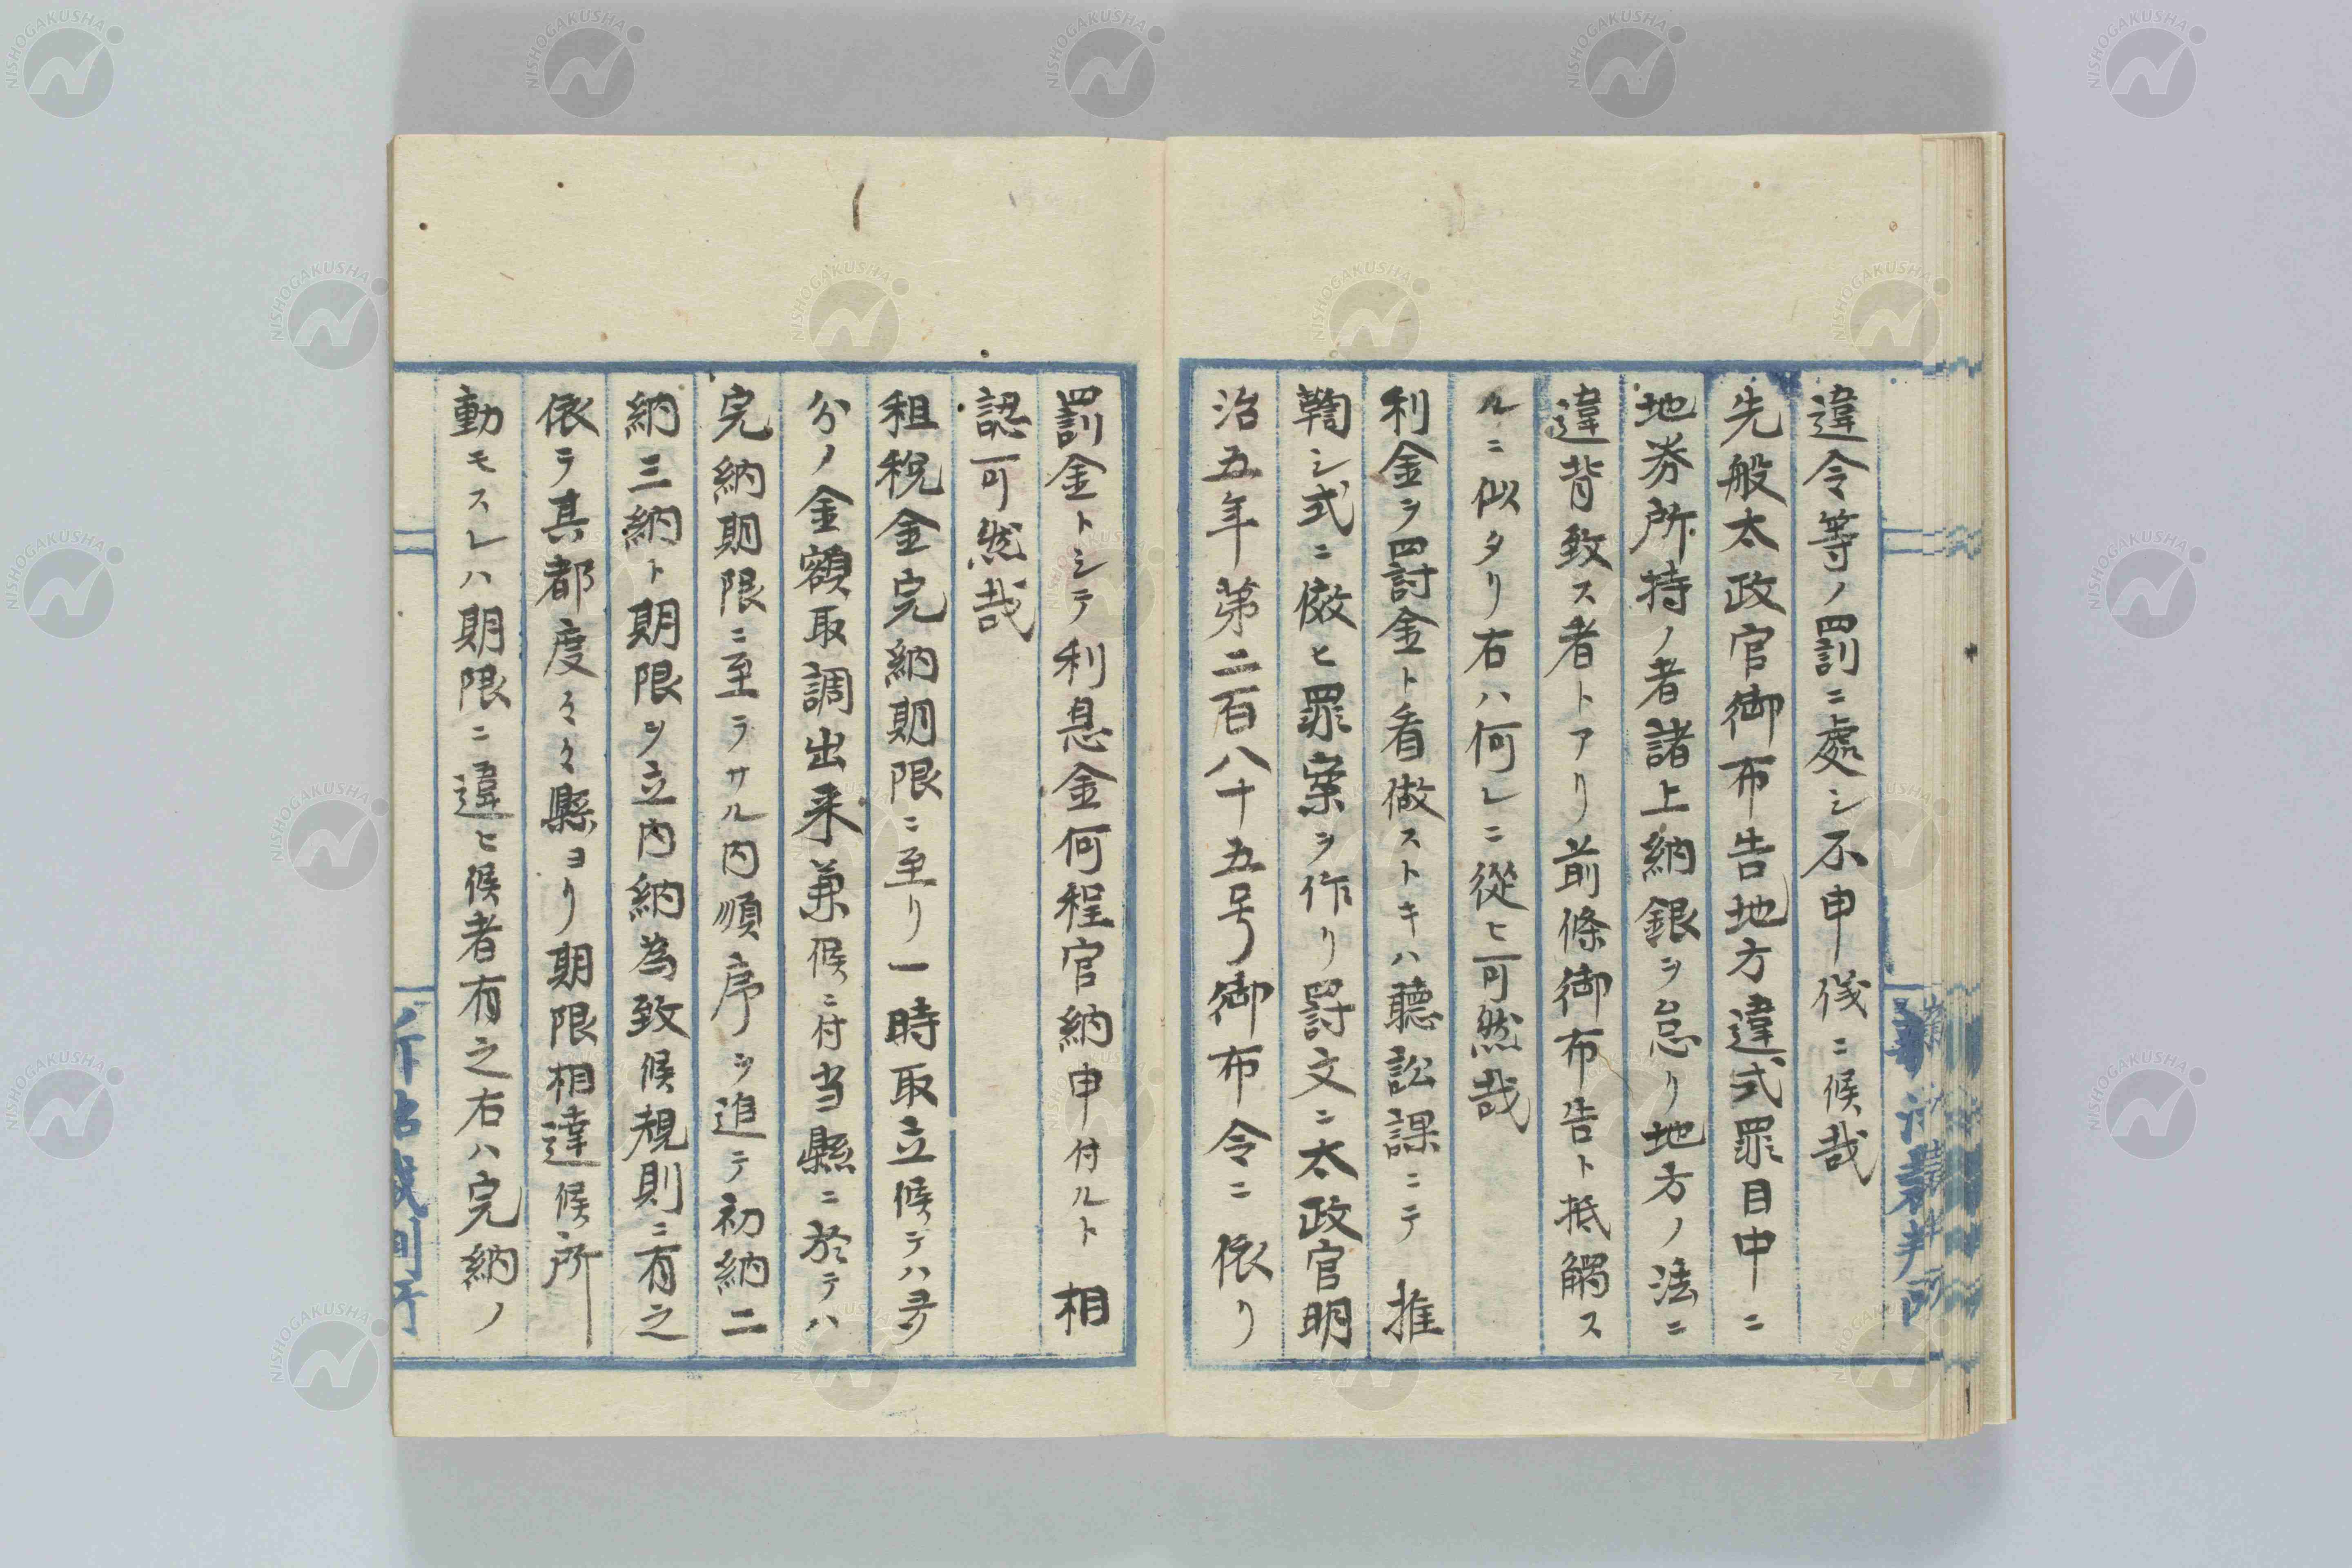 違令等ノ罰ニ處シ不申儀ニ候哉
先般太政官御布告地方違式罪目中ニ
地券所持ノ者諸上納銀ヲ怠リ地方ノ法ニ
違背致ス者トアリ前條御布告ト抵觸ス
ルニ似タリ右ハ何レニ從ヒ可然哉
利金ヲ罸金ト看做ストキハ聽訟課ニテ 推
鞫シ式ニ倣ヒ罪案ヲ作リ罸文ニ太政官明
治五年第二百八十五号御布令ニ依リ
罰金トシテ利息金何程官納申付ルト 相
認可然哉
租税金完納期限ニ至リ一時取立候テハ
分ノ金額取調出来兼候ニ付当縣ニ於テハ
完納期限ニ至ラサル内順序ヲ追テ初納二
納三納ト期限ヲ立内納為致候規則ニ有之
依テ其都度々々縣ヨリ期限相達候所
動モスレハ期限ニ違ヒ候者有之右ハ完納ノ
NISHOGAKUSHA
NISHOGAKUSHA
NISHOGAKUSHA
NISHOGAKUSHA
NISHOGAKUSHA
NISHOGAKUSHA
NISHOGAKUSHA
NISHOGAKUSHA
NISHOGAKUSHA
NISHOGAKUSHA
NISHOGAKUSHA
NISHOGAKUSHA